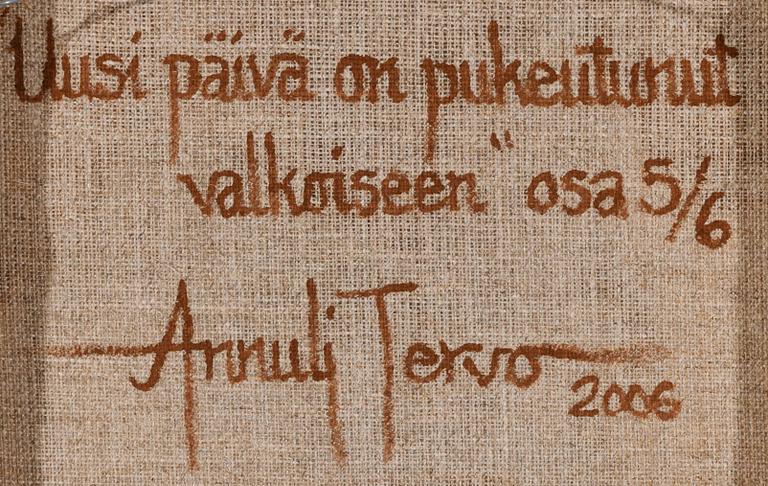 Uusi päivä on pukeutunut
valkoiseen" osa 5/6
Annuli Tervo
2006